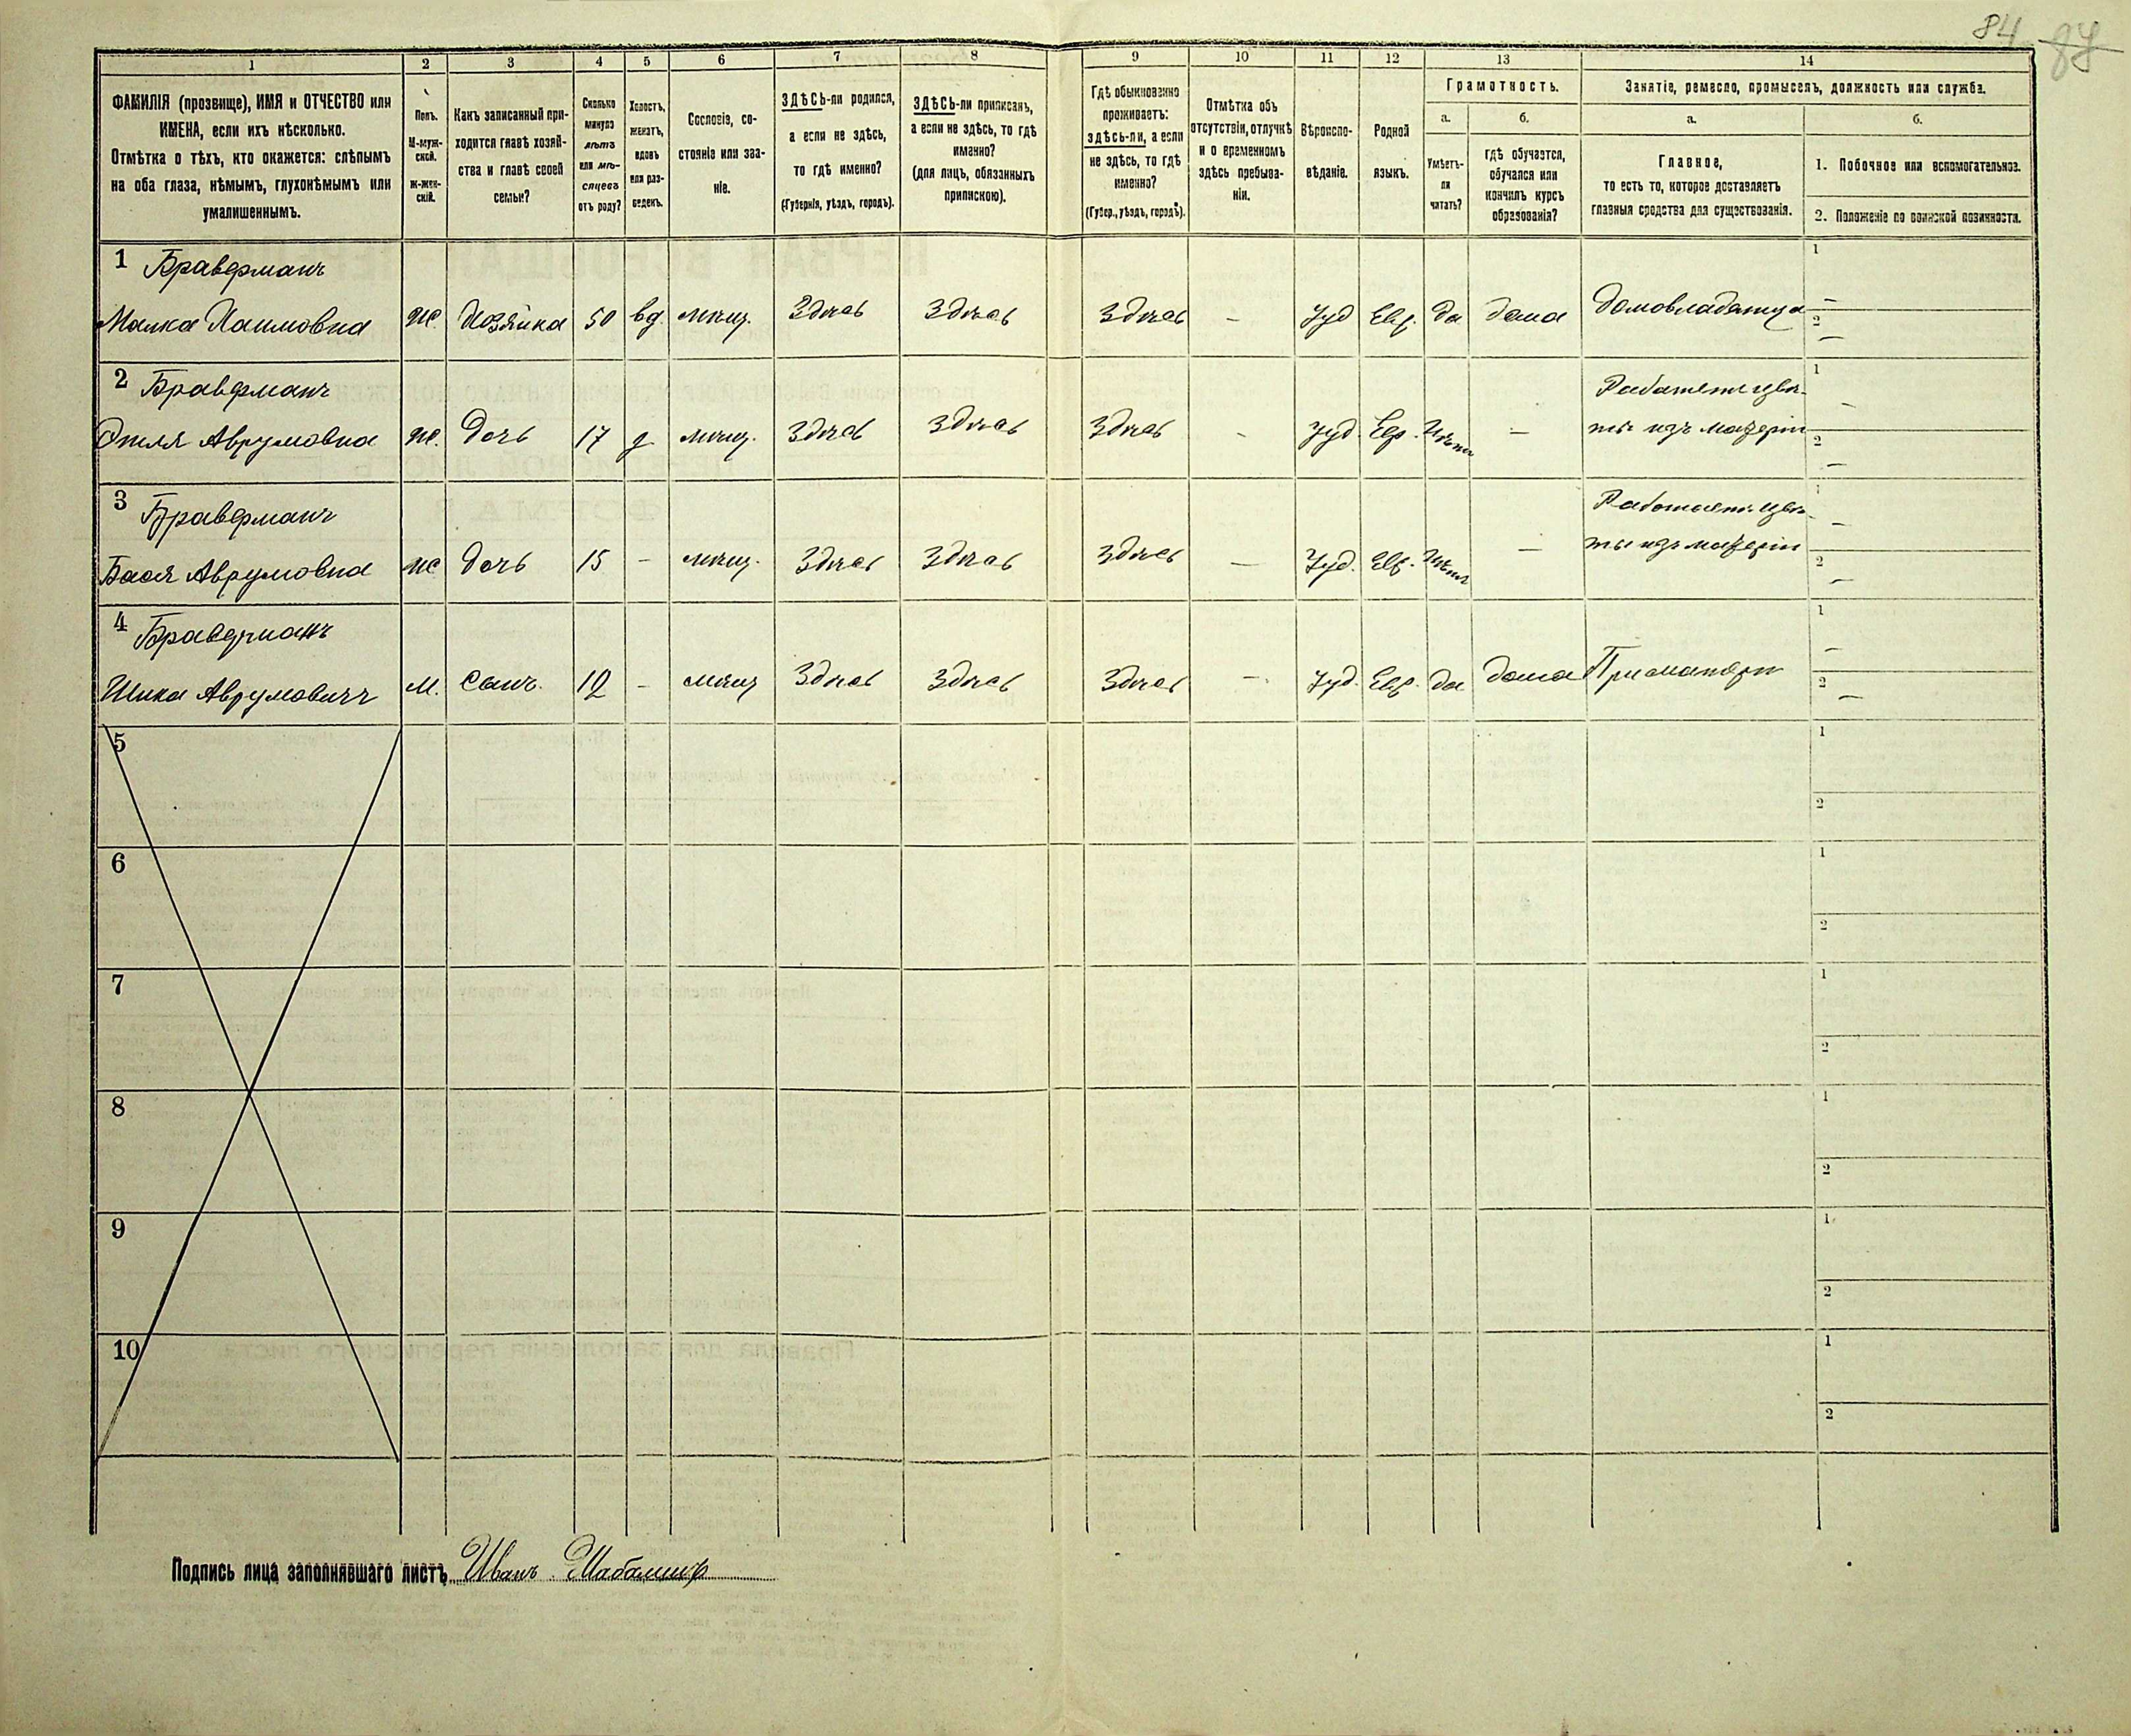 84 87
1 2 3 4 5 6 7 8 9 10 11 12 13 14
ФАМИЛІЯ (прозвище), ИМЯ и ОТЧЕСТВО или ИМЕНА, если ихъ нѣсколько.
Отмѣтка о тѣхъ, кто окажется: слѣпымъ на оба глаза, нѣмымъ, глухонѣмымъ или умалишеннымъ.
Полъ. М-мужской. Ж-женскій.
Какъ записанный приходится главѣ хозяйства и главѣ своей семьи?
Сколько минуло лѣтъ или мѣсяцевъ отъ роду?
Холостъ, женатъ, вдовъ или разведенъ.
Сословіе, состояніе или званіе.
ЗДѢСЬ-ли родился, а если не здѣсь, то гдѣ именно?
(Губернія, уѣздъ, городъ).
ЗДѢСЬ-ли приписанъ, а если не здѣсь, то гдѣ именно?
(для лицъ, обязанныхъ припискою).
Гдѣ обыкновенно проживаетъ: здѣсь-ли, а если не здѣсь, то гдѣ именно?
(Губер., уѣздъ, городъ).
Отмѣтка объ отсутствіи, отлучкѣ и о временномъ здѣсь пребываніи.
Вѣроисповѣданіе.
Родной языкъ.
Грамотность.
а. Умѣетъ-ли читать?
б. гдѣ обучается, обучался или кончилъ курсъ образованія?
Занятіе, ремесло, промыселъ, должность или служба.
а. Главное, то есть то, которое доставляетъ главныя средства для существованія.
б.
1. Побочное или вспомогательное.
2. Положеніе по воинской повинности.
1 Браверманъ
Малка Хаимовна ж. Хозяйка 50 вд. мѣщ. Здѣсь Здѣсь Здѣсь – Іуд Евр. да дома Домовладѣлица 1 – 2 –
2 Браверманъ Работаетъ цвѣ-
Этля Аврумовна ж. Дочь 17 д мѣщ. Здѣсь Здѣсь Здѣсь - Іуд. Евр. Нѣтъ – ты изъ матеріи 1 – 2 –
3 Браверманъ Работаетъ цвѣ-
Бася Аврумовна ж дочь 15 – мѣщ. Здѣсь Здѣсь Здѣсь – Іуд. Евр. Нѣтъ – ты изъ матеріи 1 – 2 –
4 Браверманъ
Шика Аврумовичъ М. Сынъ. 12 – мѣщ Здѣсь Здѣсь Здѣсь –. Іуд. Евр. да дома При матери 1 – 2 –
5 1 2
6 1 2
7 1 2
8 1 2
9 1 2
10 1 2
Подпись лица заполнявшаго листъ Иванъ